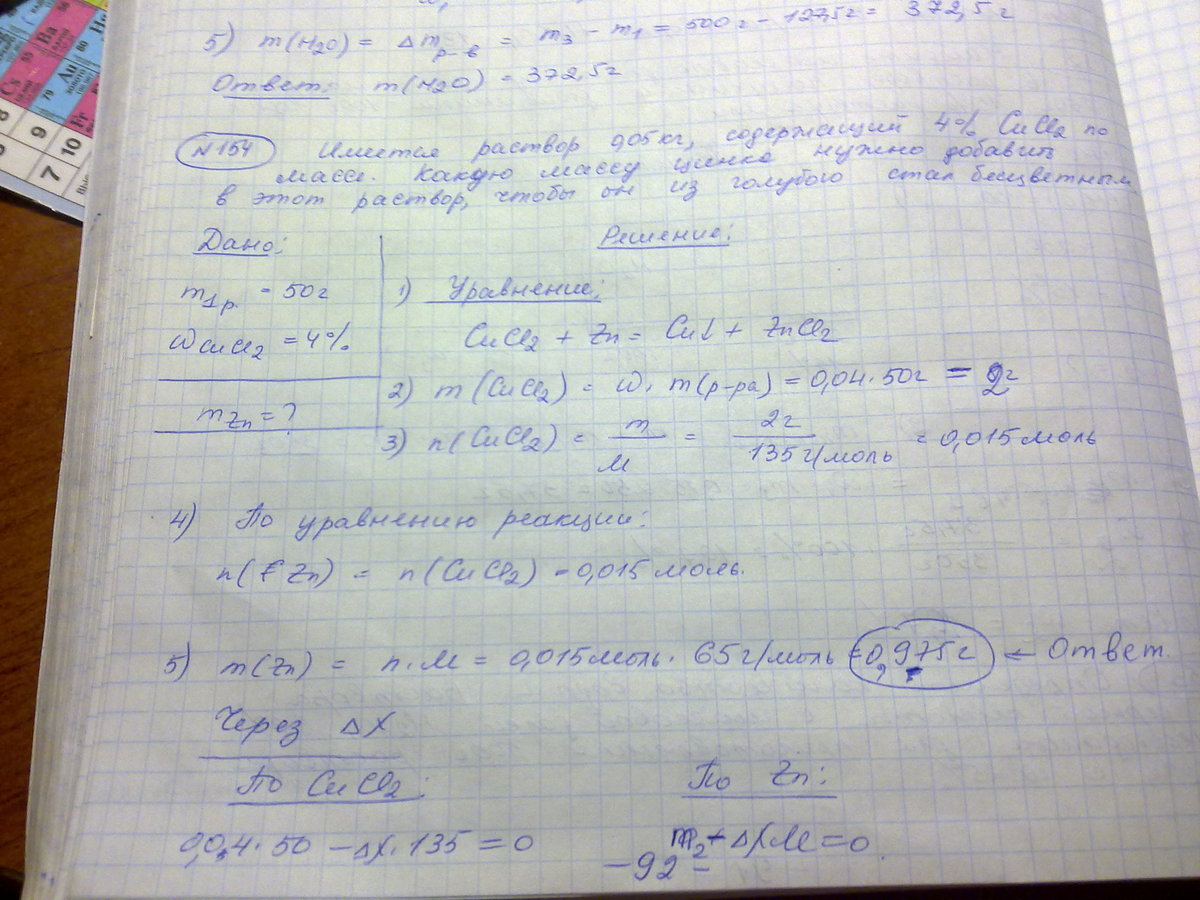 5) m(H₂O) = Δm р-в = m₃ - m₁ = 500г - 127,5г = 372,5г
Ответ: m(H₂O) = 372,5г
№154 Имеется раствор 0,05кг, содержащий 4% CuCl₂ по
массе. Какую массу цинка нужно добавить
в этот раствор, чтобы он из голубого стал бесцветным.
Дано: Решение:
m₁р. = 50г 1) Уравнение:
CuCl₂ + Zn = Cu↓ + ZnCl₂
ωCuCl₂ = 4%
2) m(CuCl₂) = ω · m(р-ра) = 0,04 · 50г = 2г
mZn = ?
3) n(CuCl₂) = m/M = 2г/135г/моль = 0,015моль
4) По уравнению реакции:
n(Zn) = n(CuCl₂) = 0,015моль.
5) m(Zn) = n·M = 0,015моль · 65г/моль = 0,975г ← Ответ
Через ΔX
По CuCl₂: По Zn:
0,04·50 - ΔX·135 = 0 m₂ + ΔXM = 0.
Cs 55
Ba 56
79 Au
золото
Fr
8
9
10
7